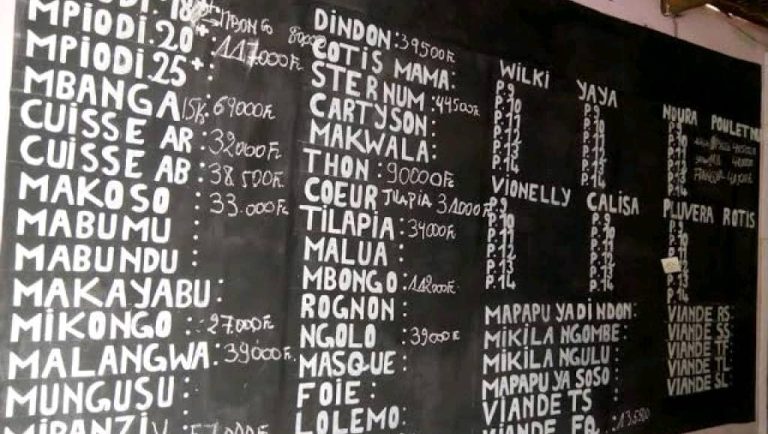 MPIODI 20+: 117.000Fc
MPIODI 25+:
MBANGA 15K: 69000Fc
CUISSE AR: 32000Fc
CUISSE AB: 38.500Fc
MAKOSO : 33.000Fc
MABUMU :
MABUNDU :
MAKAYABU:
MIKONGO : 27000Fc
MALANGWA: 39000Fc
MUNGUSU :
DINDON: 39500Fc
COTIS MAMA:
STERNUM: 44500Fc
CARTYSON:
MAKWALA:
THON: 90000Fc
COEUR TILAPIA 31000Fc
TILAPIA: 34000Fc
MALUA:
MBONGO: 112000Fc
ROGNON:
NGOLO : 39000Fc
MASQUE:
FOIE :
LOLEMO:
WILKI
P.9
P.10
P.11
P.12
P.13
P.14
YAYA
P.9
P.10
P.11
P.12
P.13
P.14
VIONELLY
P.9
P.10
P.11
P.12
P.13
P.14
CALISA
P.9
P.10
P.11
P.12
P.13
P.14
MAPAPU YA DINDON:
MIKILA NGOMBE:
MIKILA NGULU:
MAPAPU YA SOSO:
VIANDE TS
VIANDE FQ :
NDURA POULET
P.9
P.10
P.11
P.12
P.13
P.14
PLUVERA ROTIS
P.9
P.10
P.11
P.12
P.13
P.14
VIANDE RS:
VIANDE SS:
VIANDE TF:
VIANDE TL:
VIANDE SL: